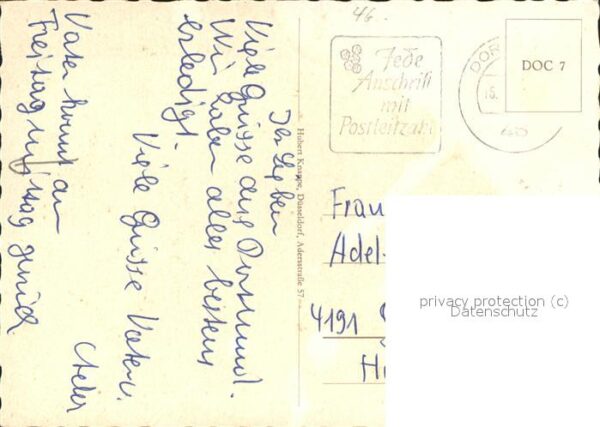 46.
Jede
Anschrift
mit
Postleitzahl
DOR
15.
DOC 7
Ihr Lieben
Viele Grüsse aus Dortmund.
Wir haben alles bestens
erledigt.
Viele Grüsse Vater u.
Vater kommt am
Freitag mittag zurück.
Hubert Knippe, Düsseldorf, Adersstraße 57
Frau
Adel-
4191
H
privacy protection (c)
Datenschutz